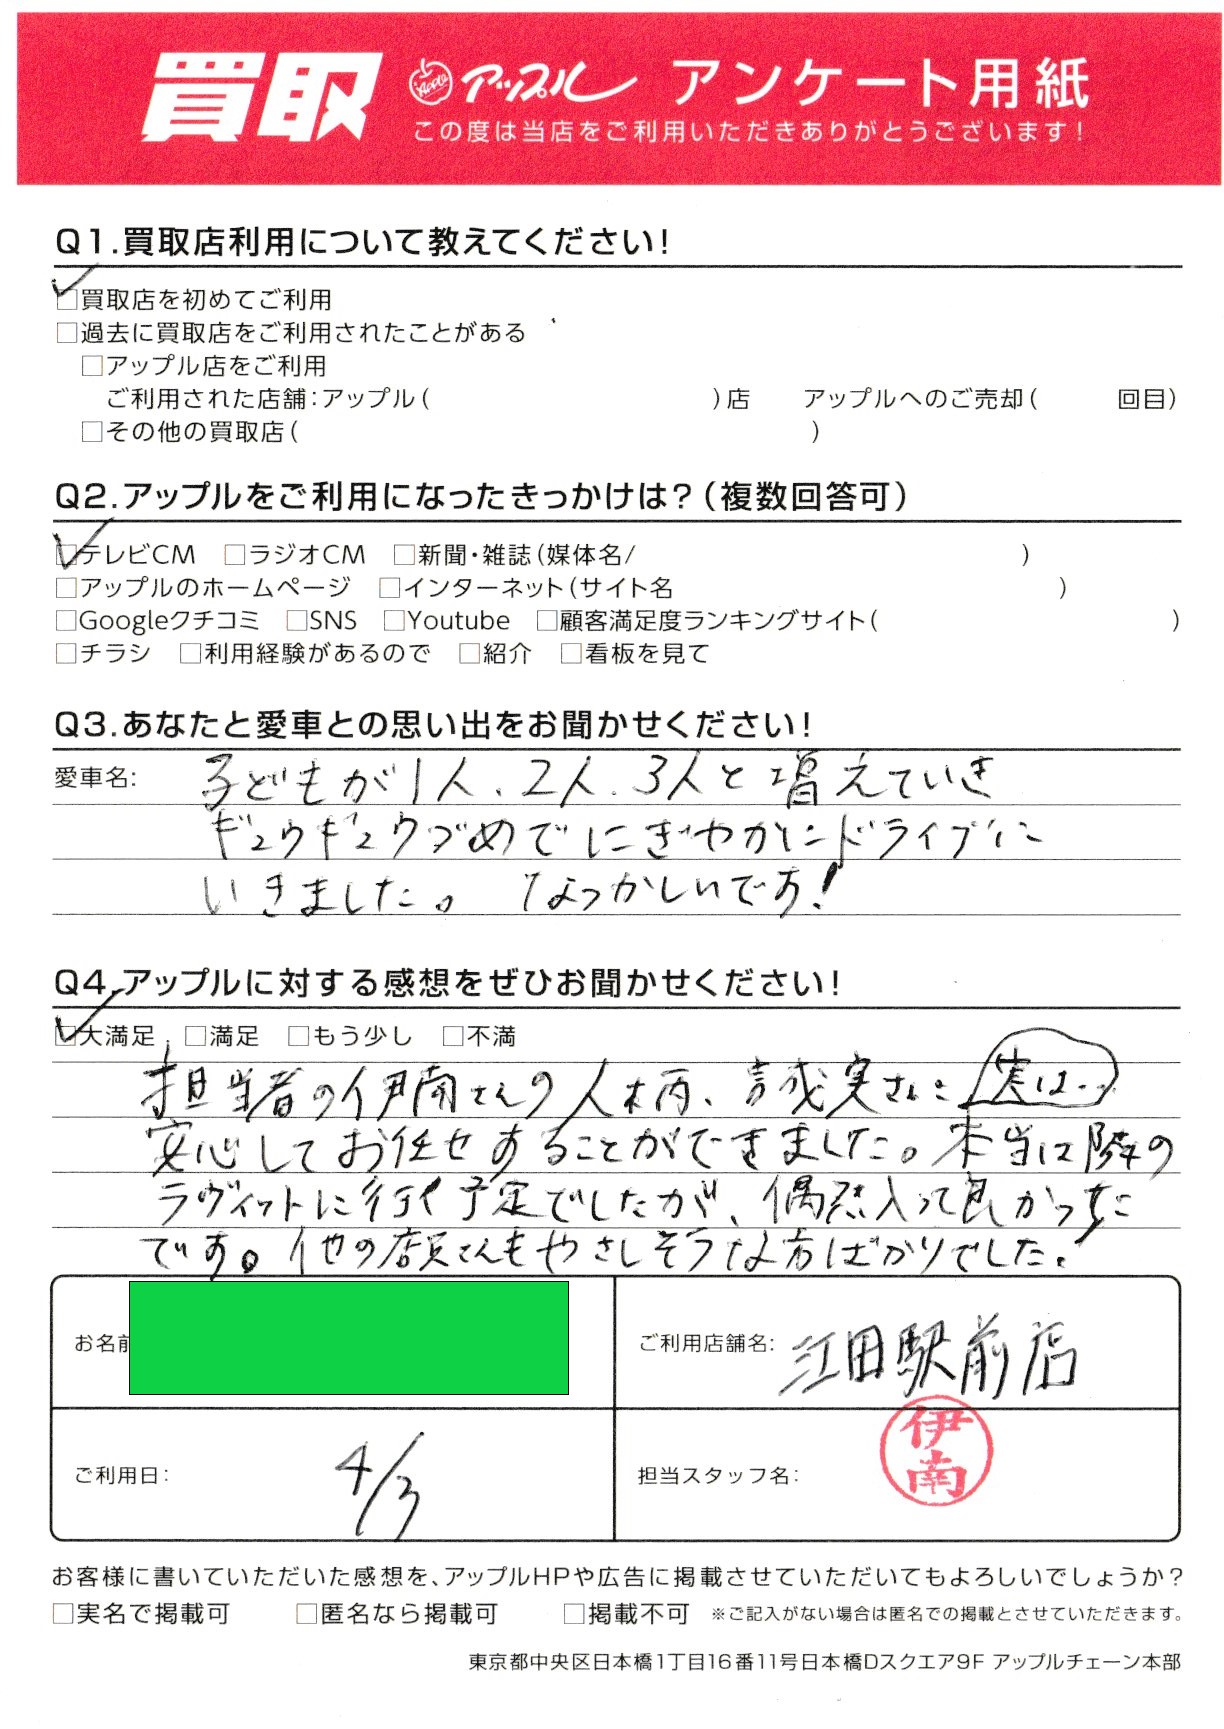 買取 Apple アップル アンケート用紙
この度は当店をご利用いただきありがとうございます!
Q1.買取店利用について教えてください!
☑買取店を初めてご利用
□過去に買取店をご利用されたことがある
□アップル店をご利用
ご利用された店舗:アップル( )店 アップルへのご売却( 回目)
□その他の買取店( )
Q2.アップルをご利用になったきっかけは?(複数回答可)
☑テレビCM □ラジオCM □新聞・雑誌(媒体名/ )
□アップルのホームページ □インターネット(サイト名 )
□Googleクチコミ □SNS □Youtube □顧客満足度ランキングサイト( )
□チラシ □利用経験があるので □紹介 □看板を見て
Q3.あなたと愛車との思い出をお聞かせください!
愛車名: 子どもが1人、2人、3人と増えていき
ギュウギュウヅめでにぎやかにドライブに
いきました。なつかしいです!
Q4.アップルに対する感想をぜひお聞かせください!
☑大満足 □満足 □もう少し □不満
担当者の伊南さんの人柄、誠実さに 実は‥
安心してお任せすることができました。本当は隣の
ラヴィットに行く予定でしたが、偶然入って良かった
です。他の店員さんもやさしそうな方ばかりでした。
お名前
ご利用店舗名: 江田駅前店
ご利用日: 4/3
担当スタッフ名: 伊南
お客様に書いていただいた感想を、アップルHPや広告に掲載させていただいてもよろしいでしょうか?
□実名で掲載可 □匿名なら掲載可 □掲載不可 ※ご記入がない場合は匿名での掲載とさせていただきます。
東京都中央区日本橋1丁目16番11号日本橋Dスクエア9F アップルチェーン本部